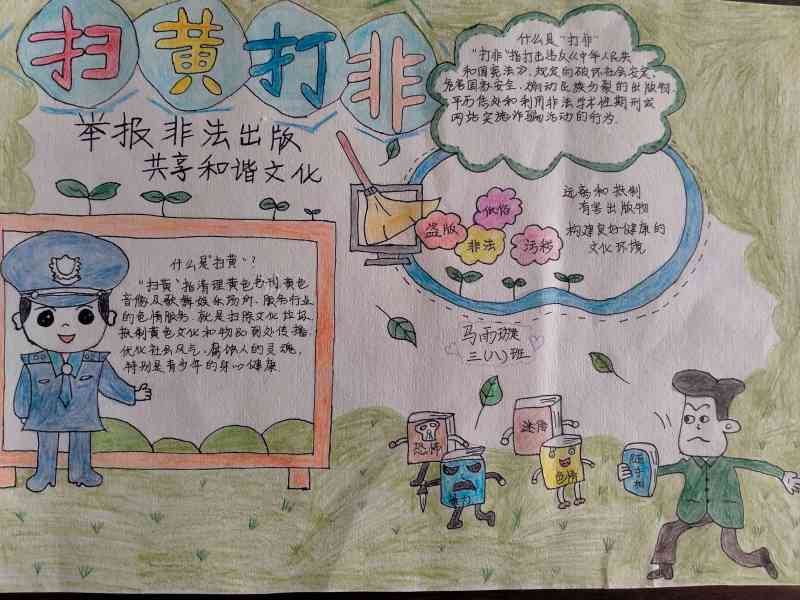 扫黄打非
举报非法出版
共享和谐文化
什么是"打非"
"打非"指打击违反《中华人民共
和国宪法》规定的破坏社会安定、
危害国家安全、煽动民族分裂的出版物,
内活实施诈骗活动的行为.
盗版
低俗
非法
污秽
远离和抵制
有害出版物
构建良好健康的
文化环境
什么是"扫黄"?
"扫黄"指清理黄色书刊,黄色
音像及歌舞娱乐场所、服务行业
的色情服务.就是扫除文化垃圾
抵制黄色文化和物品到处传播.
优化社会风气.腐蚀人的灵魂,
特别是青少年的身心健康
三(八)班
恐怖
暴力
迷信
色情